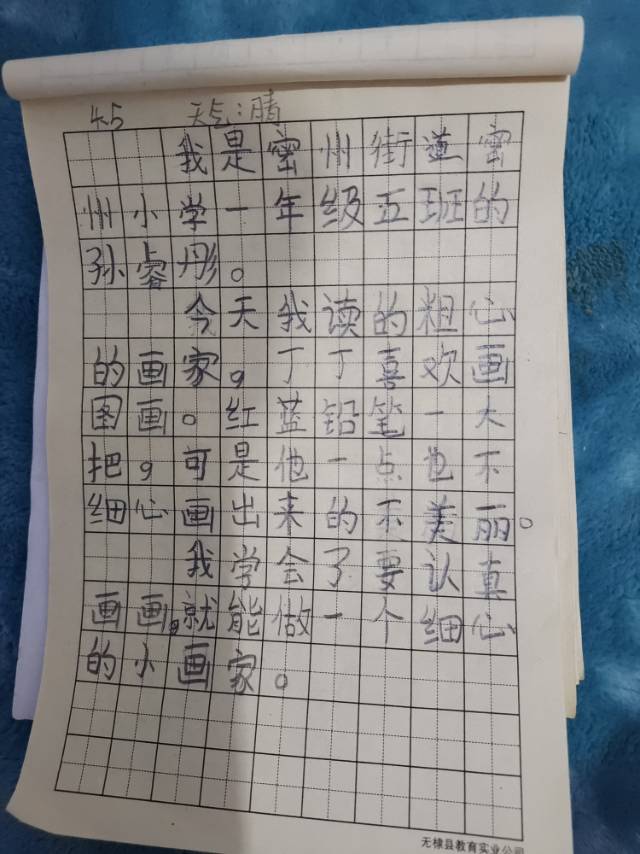 4.5 天气:晴
我是密州街道密
州小学一年级五班的
孙睿彤。
今天我读的粗心
的画家,丁丁喜欢画
图画。红蓝铅笔一大
把,可是他一点也不
细心画出来的不美丽。
我学会了要认真
画画,就能做一个细心
的小画家。
无棣县教育实业公司